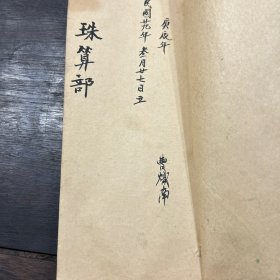 庚辰年
民國廿九年 叁月廿七日立
珠算部
曹焕南